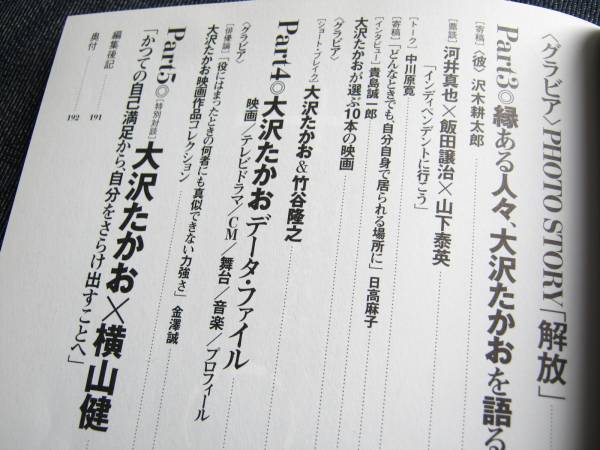 〈グラビア〉PHOTO STORY「解放」
Part3◎縁ある人々、大沢たかおを語る
[寄稿]〈彼〉沢木耕太郎
[鼎談]河井真也×飯田譲治×山下泰英
「インディペンデントに行こう」
[トーク]中川原寛
[寄稿]「どんなときでも、自分自身で居られる場所に」日高麻子
[インタビュー]貴島誠一郎
大沢たかおが選ぶ10本の映画
〈グラビア〉
[ショート・ブレイク]大沢たかお&竹谷隆之
Part4◎大沢たかおデータ・ファイル
映画/テレビドラマ/CM/舞台/音楽/プロフィール
〈グラビア〉
[俳優論]「役にはまったときの何者にも真似できない力強さ」金澤誠
大沢たかお映画作品コレクション
Part5◎[特別対談]大沢たかお×横山健
「かつての自己満足から、自分をさらけ出すことへ」
編集後記 191
奥付 192